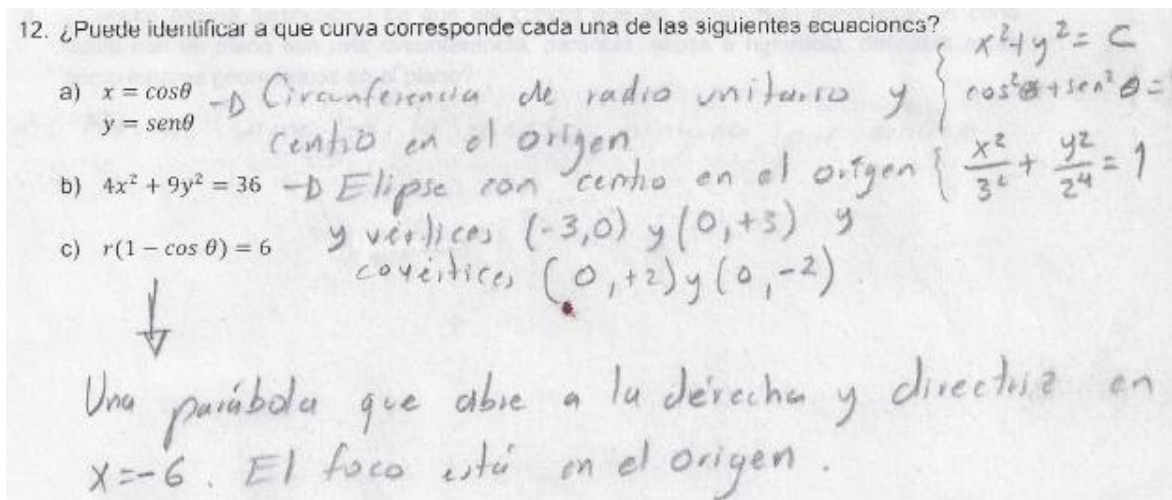 12. ¿Puede identificar a que curva corresponde cada una de las siguientes ecuaciones?
x²+y²= C
a) x = cosθ
y = senθ
→ Circunferencia de radio unitario y
centro en el origen
cos²θ+sen²θ=
b) 4x² + 9y² = 36 → Elipse con centro en el origen { x²/3² + y²/2⁴ = 1
y vértices (-3,0) y (0,+3) y
covértices (0,+2) y (0,-2)
c) r(1 − cos θ) = 6
↓
Una parábola que abre a la derecha y directriz en
x=-6. El foco está en el origen.